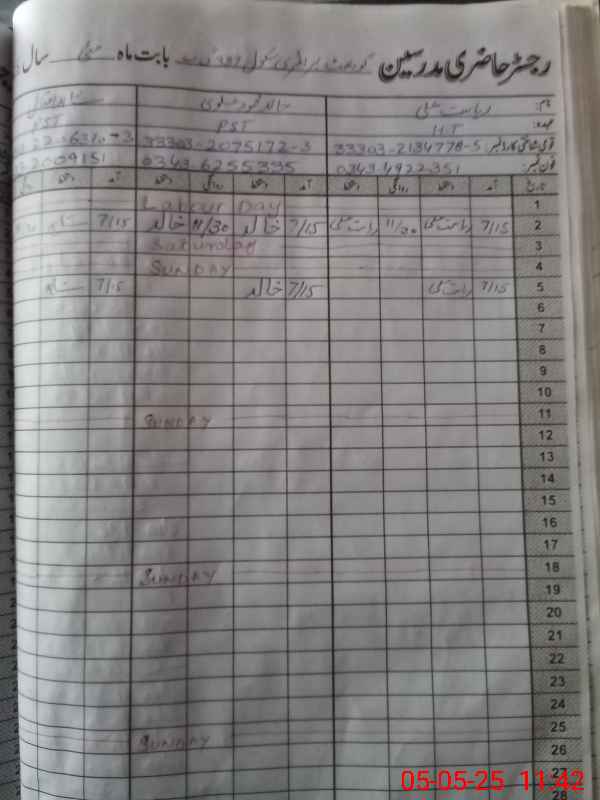 رجسٹر حاضری مدرسین گورنمنٹ پرائمری سکول بابت ماہ مئی سال
نام: ریاست علی خالد محمود
عہدہ: HT PST PST
قومی شناختی کارڈ نمبر: 33303-2134778-5 33303-2075172-3
فون نمبر: 0343 4922351 0343 6255335 2009151
تاریخ آمد دستخط روانگی دستخط آمد دستخط روانگی دستخط آمد دستخط
1 Labour Day
2 7/15 ریاست علی 11/30 ریاست علی 7/15 خالد 11/30 خالد 7/15
3 Saturday
4 SUNDAY
5 7/15 ریاست علی 7/15 خالد 7/15
6
7
8
9
10
11 SUNDAY
12
13
14
15
16
17
18 SUNDAY
19
20
21
22
23
24
25 SUNDAY
26
27
28
05-05-25 11:42